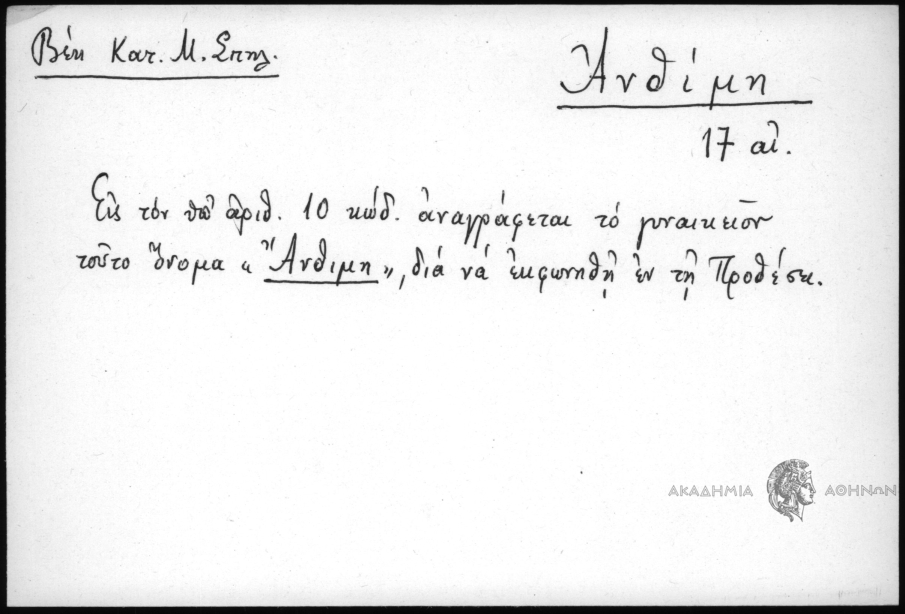 Βέη Κατ. Μ. Σπηλ.
Ἀνθίμη
17 αἰ.
Εἰς τὸν ὑπ' ἀριθ. 10 κώδ. ἀναγράφεται τὸ γυναικεῖον
τοῦτο ὄνομα « Ἄνθιμη », διά νά ἐκφωνηθῇ ἐν τῇ Προθέσει.
ΑΚΑΔΗΜΙΑ ΑΘΗΝΩΝ